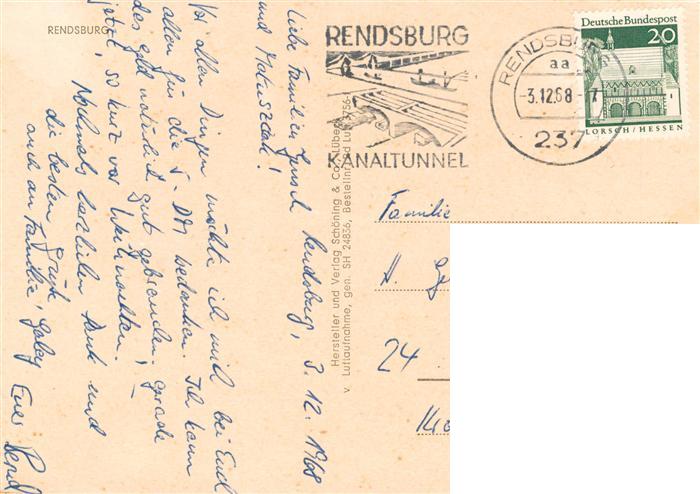 RENDSBURG
Rendsburg, 3. 12. 1968
Liebe Familien Jensel
und Matuszak!
Vor allen Dingen möchte ich mich bei Euch
allen für die 5.- DM bedanken. Ich kann
das geld natürlich gut gebrauchen, gerade
jetzt, so kurz vor Weihnachten.
Nochmals herzlichen Dank und
die besten Grüße
auch an Familie Galey Euer Bernd
v Hersteller und Verlag Schöning & Co, Lübeck
Luftaufnahme, gen. SH 24836, Bestellnr.
RENDSBURG
KANALTUNNEL
RENDSBURG
aa
-3.12.68-7
237
Deutsche Bundespost
20
LORSCH/HESSEN
Familie
H. Ge
24